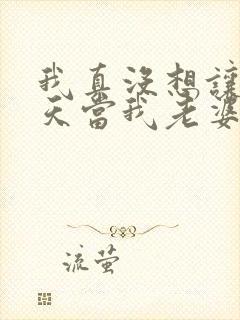 我真沒想讓
天當我老婆
流萤